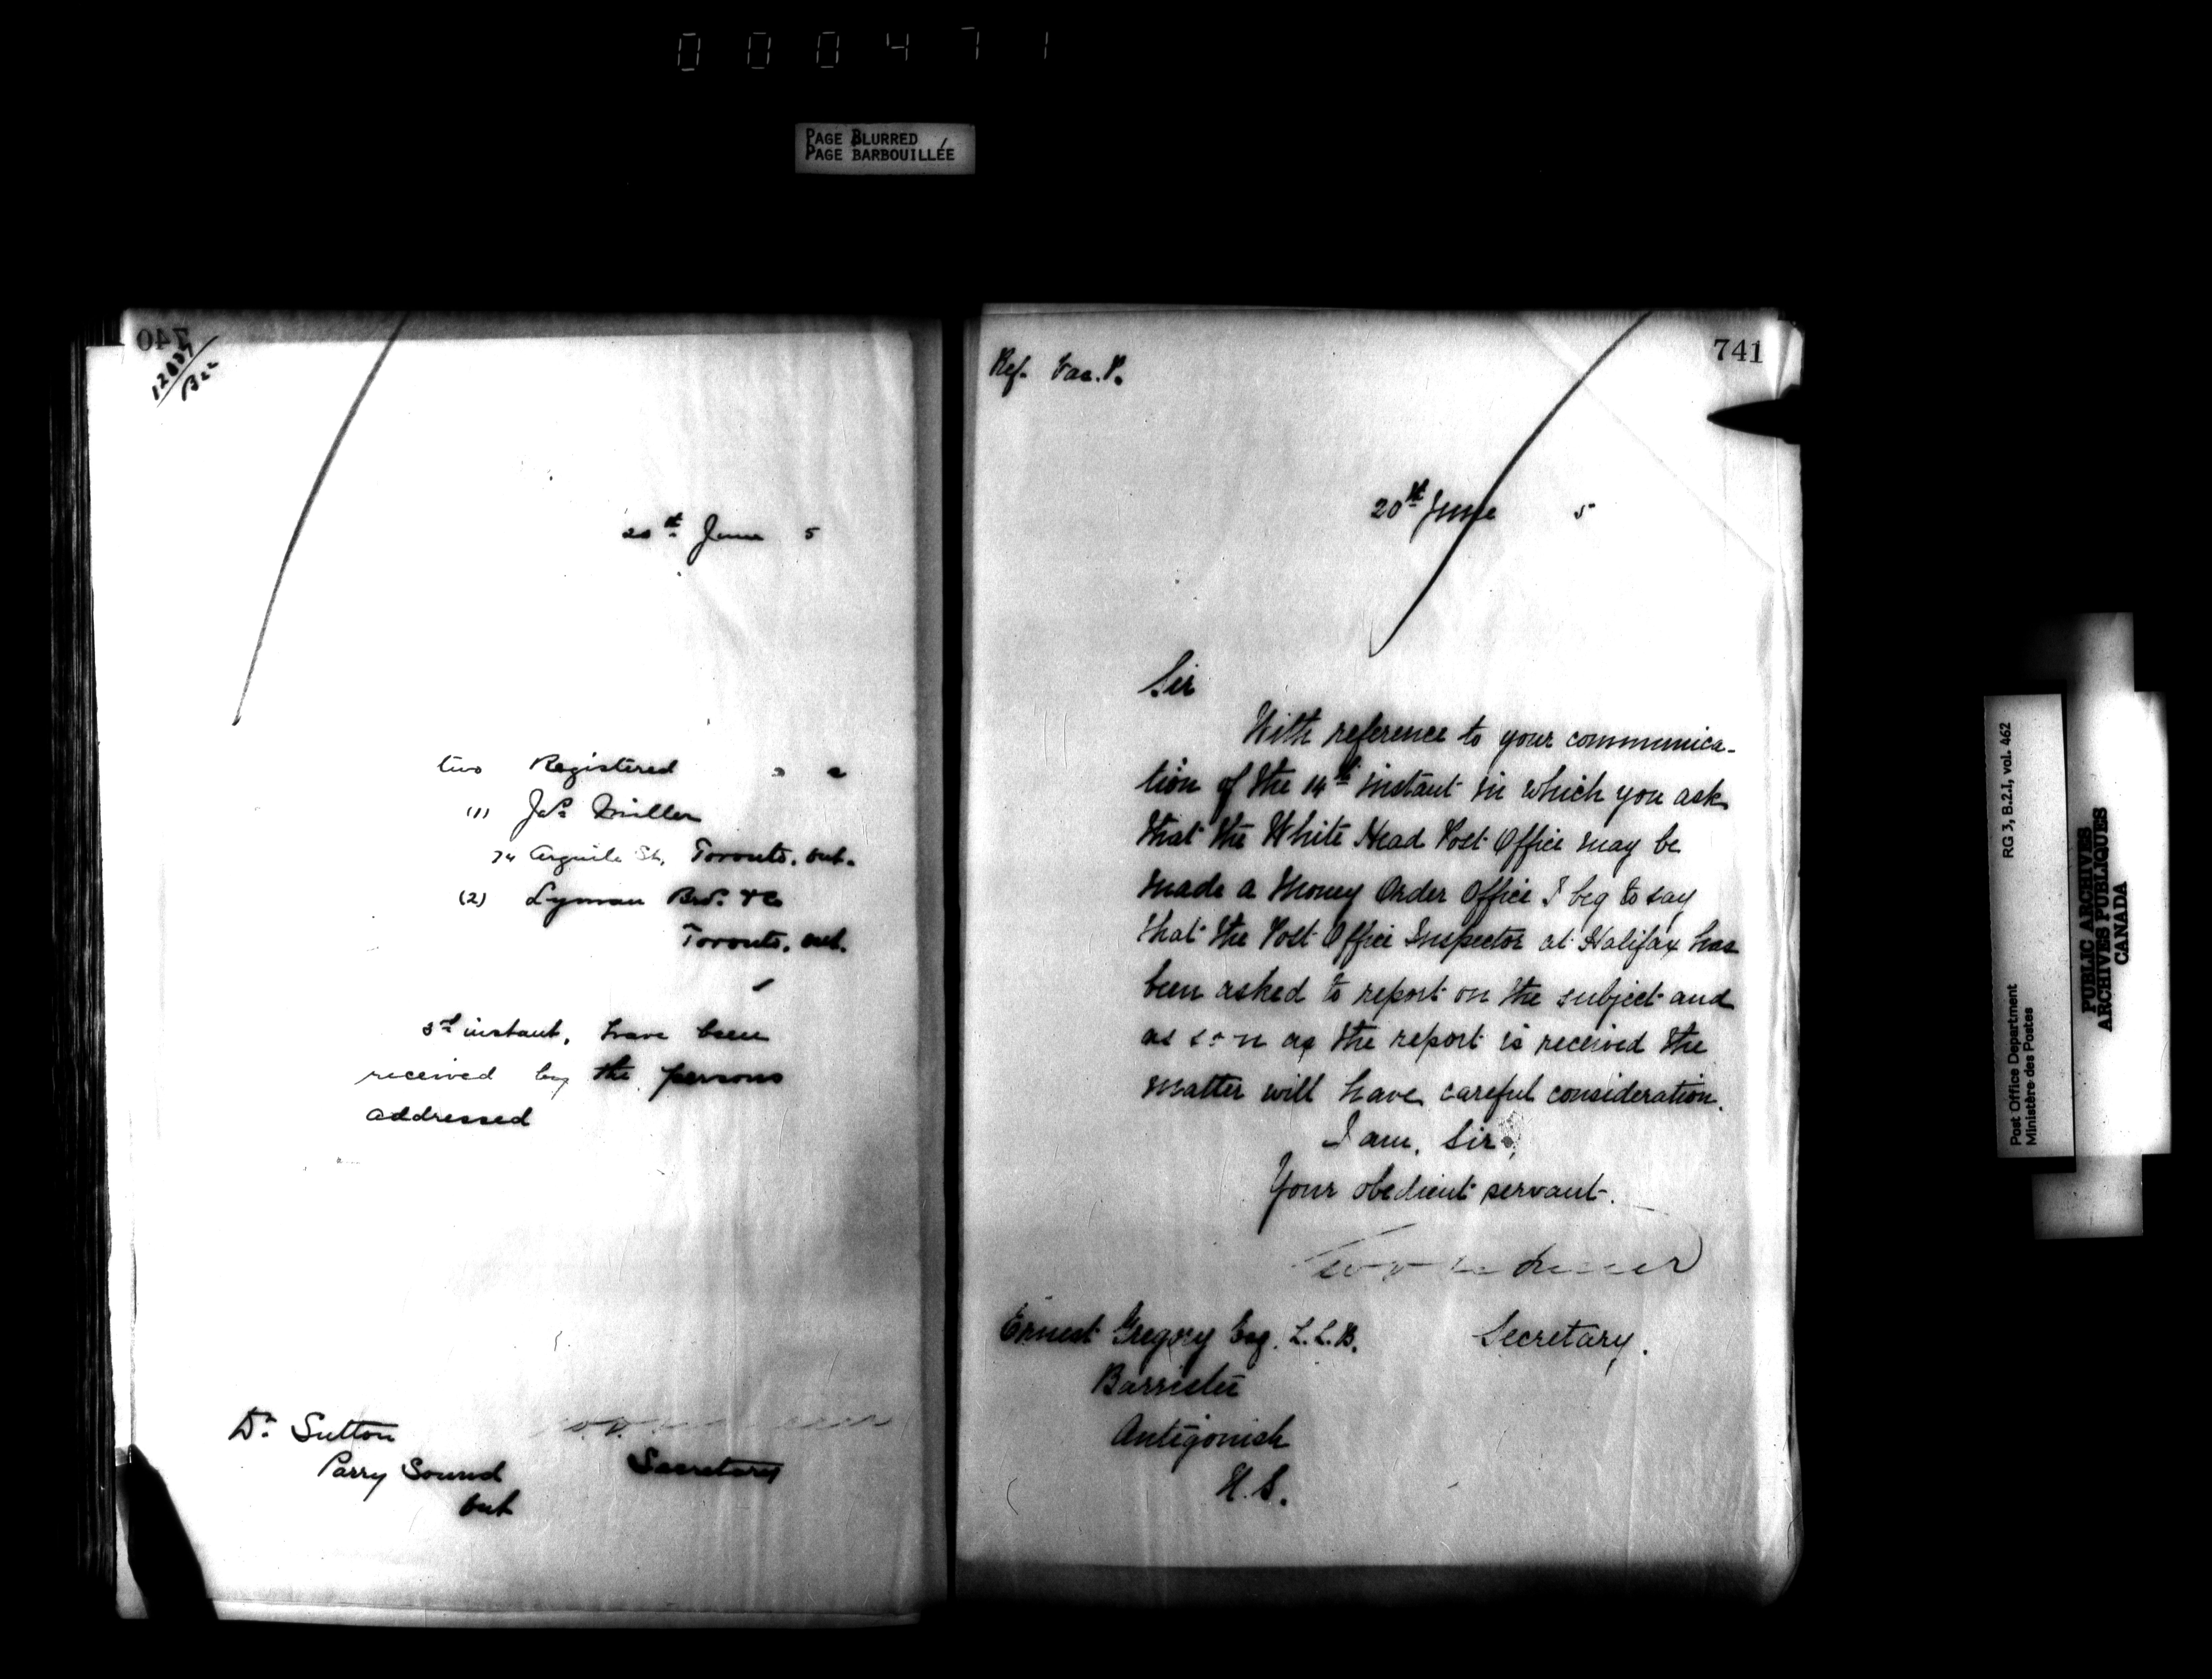 000471
PAGE BLURRED
PAGE BARBOUILLÉE
740
20th June 5
two Registered
(1) Jas. Miller
74 Arguile St, Toronto, Ont.
(2) Lyman Bros. & Co
Toronto, Ont.
3rd instant, have been
received by the persons
addressed
Dr. Sutton
Parry Sound
Ont
Secretary
741
Ref.
20th June 5
Sir
With reference to your communica-
tion of the 14th instant in which you ask
that the White Head Post Office may be
made a Money Order Office I beg to say
that the Post Office Inspector at Halifax has
been asked to report on the subject and
as soon as the report is received the
matter will have careful consideration.
I am, Sir,
Your obedient servant.
Secretary.
Ernest Gregory Esq. L.L.B.
Barrister
Antigonish
N.S.
Post Office Department
Ministère des Postes
RG 3, B.2.I, vol. 462
PUBLIC ARCHIVES
ARCHIVES PUBLIQUES
CANADA